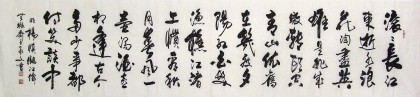 滾滾長江
東逝水浪
花淘盡英
雄是非成
敗轉頭空
青山依舊
在幾度夕
陽紅白髮
漁樵江渚
上慣看秋
月春風一
壺濁酒喜
相逢古今
多少事都
付笑談中
明楊慎臨江仙